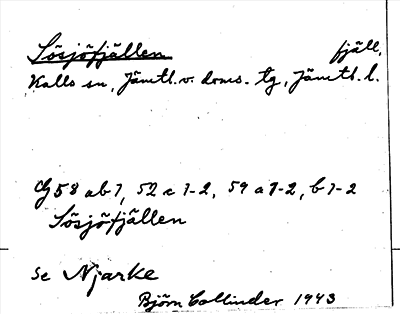 Lösjöfjällen fjäll,
Kalls sn, Jämtl. v. doms. tg, Jämtl. l.
58 ab 1, 52 c 1-2, 59 a 1-2, b 1-2
Lösjöfjällen
se Njarke
Björn Collinder 1943